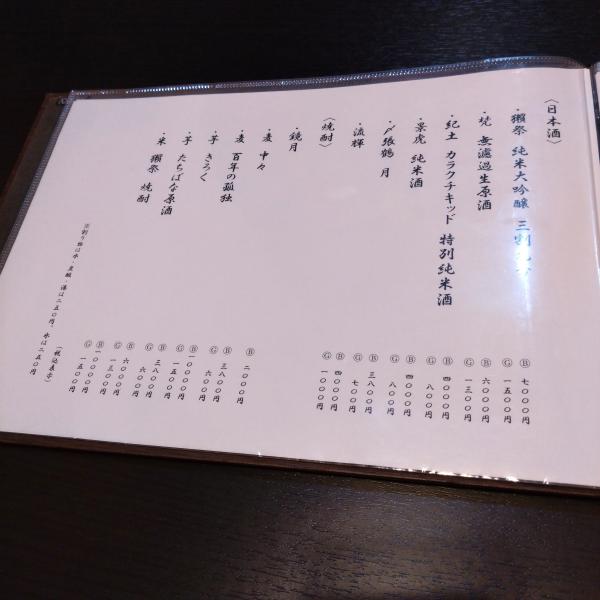 〈日本酒〉
・獺祭 純米大吟醸 三割九分
Ⓑ 七〇〇〇円
Ⓖ 一五〇〇円
・梵 無濾過生原酒
Ⓑ 六〇〇〇円
Ⓖ 一三〇〇円
・紀土 カラクチキッド 特別純米酒
Ⓑ 四〇〇〇円
Ⓖ 八〇〇円
・景虎 純米酒
Ⓑ 四〇〇〇円
Ⓖ 八〇〇円
・〆張鶴 月
Ⓑ 三八〇〇円
Ⓖ 七〇〇円
・流輝
Ⓑ 四〇〇〇円
Ⓖ 一〇〇〇円
〈焼酎〉
・鏡月
Ⓑ 二〇〇〇円
・麦 中々
Ⓑ 三八〇〇円
Ⓖ 六〇〇円
・麦 百年の孤独
Ⓑ 一〇〇〇〇円
Ⓖ 一五〇〇円
・芋 きろく
Ⓑ 三八〇〇円
Ⓖ 六〇〇円
・芋 たちばな原酒
Ⓑ 六〇〇〇円
Ⓖ 一三〇〇円
・米 獺祭 焼酎
Ⓑ 一〇〇〇〇円
Ⓖ 一五〇〇円
(税込表示)
※割り物は水・炭酸・湯は二五〇円、氷は二五〇円